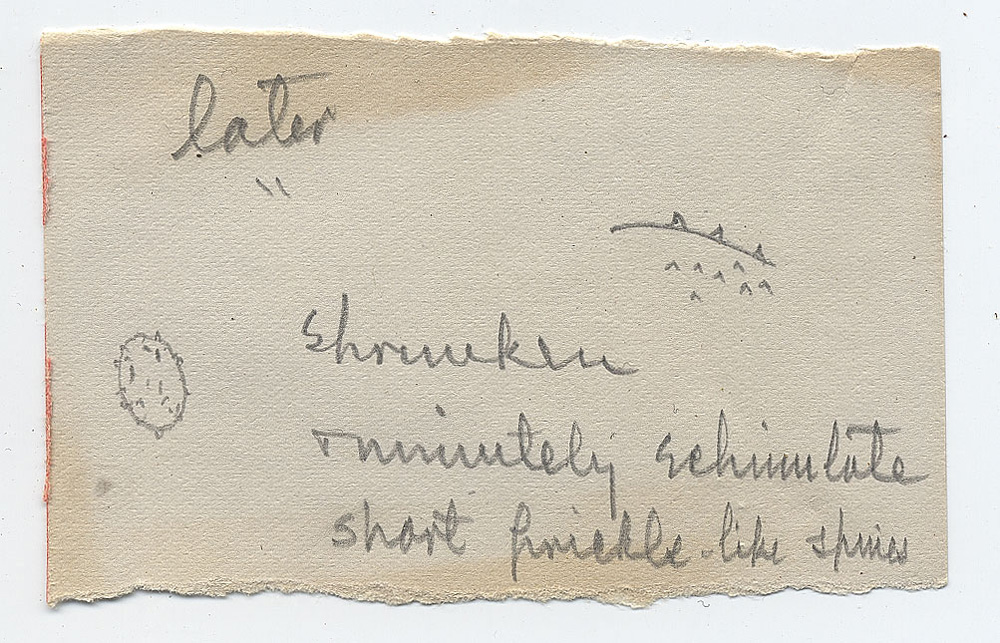 later
"
Shrunken
+ minutely echinulate
short prickle-like spines